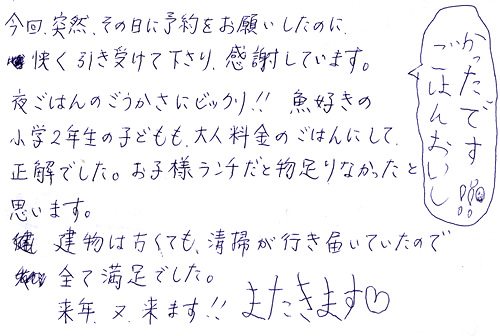 今回、突然、その日に予約をお願いしたのに、
快く引き受けて下さり、感謝しています。
夜ごはんのごうかさにビックリ!! 魚好きの
小学2年生の子どもも、大人料金のごはんにして、
正解でした。お子様ランチだと物足りなかったと
思います。
建物は古くても、清掃が行き届いていたので
全て満足でした。
来年、又、来ます!! またきます♡
ごはんおいし
かったです!!